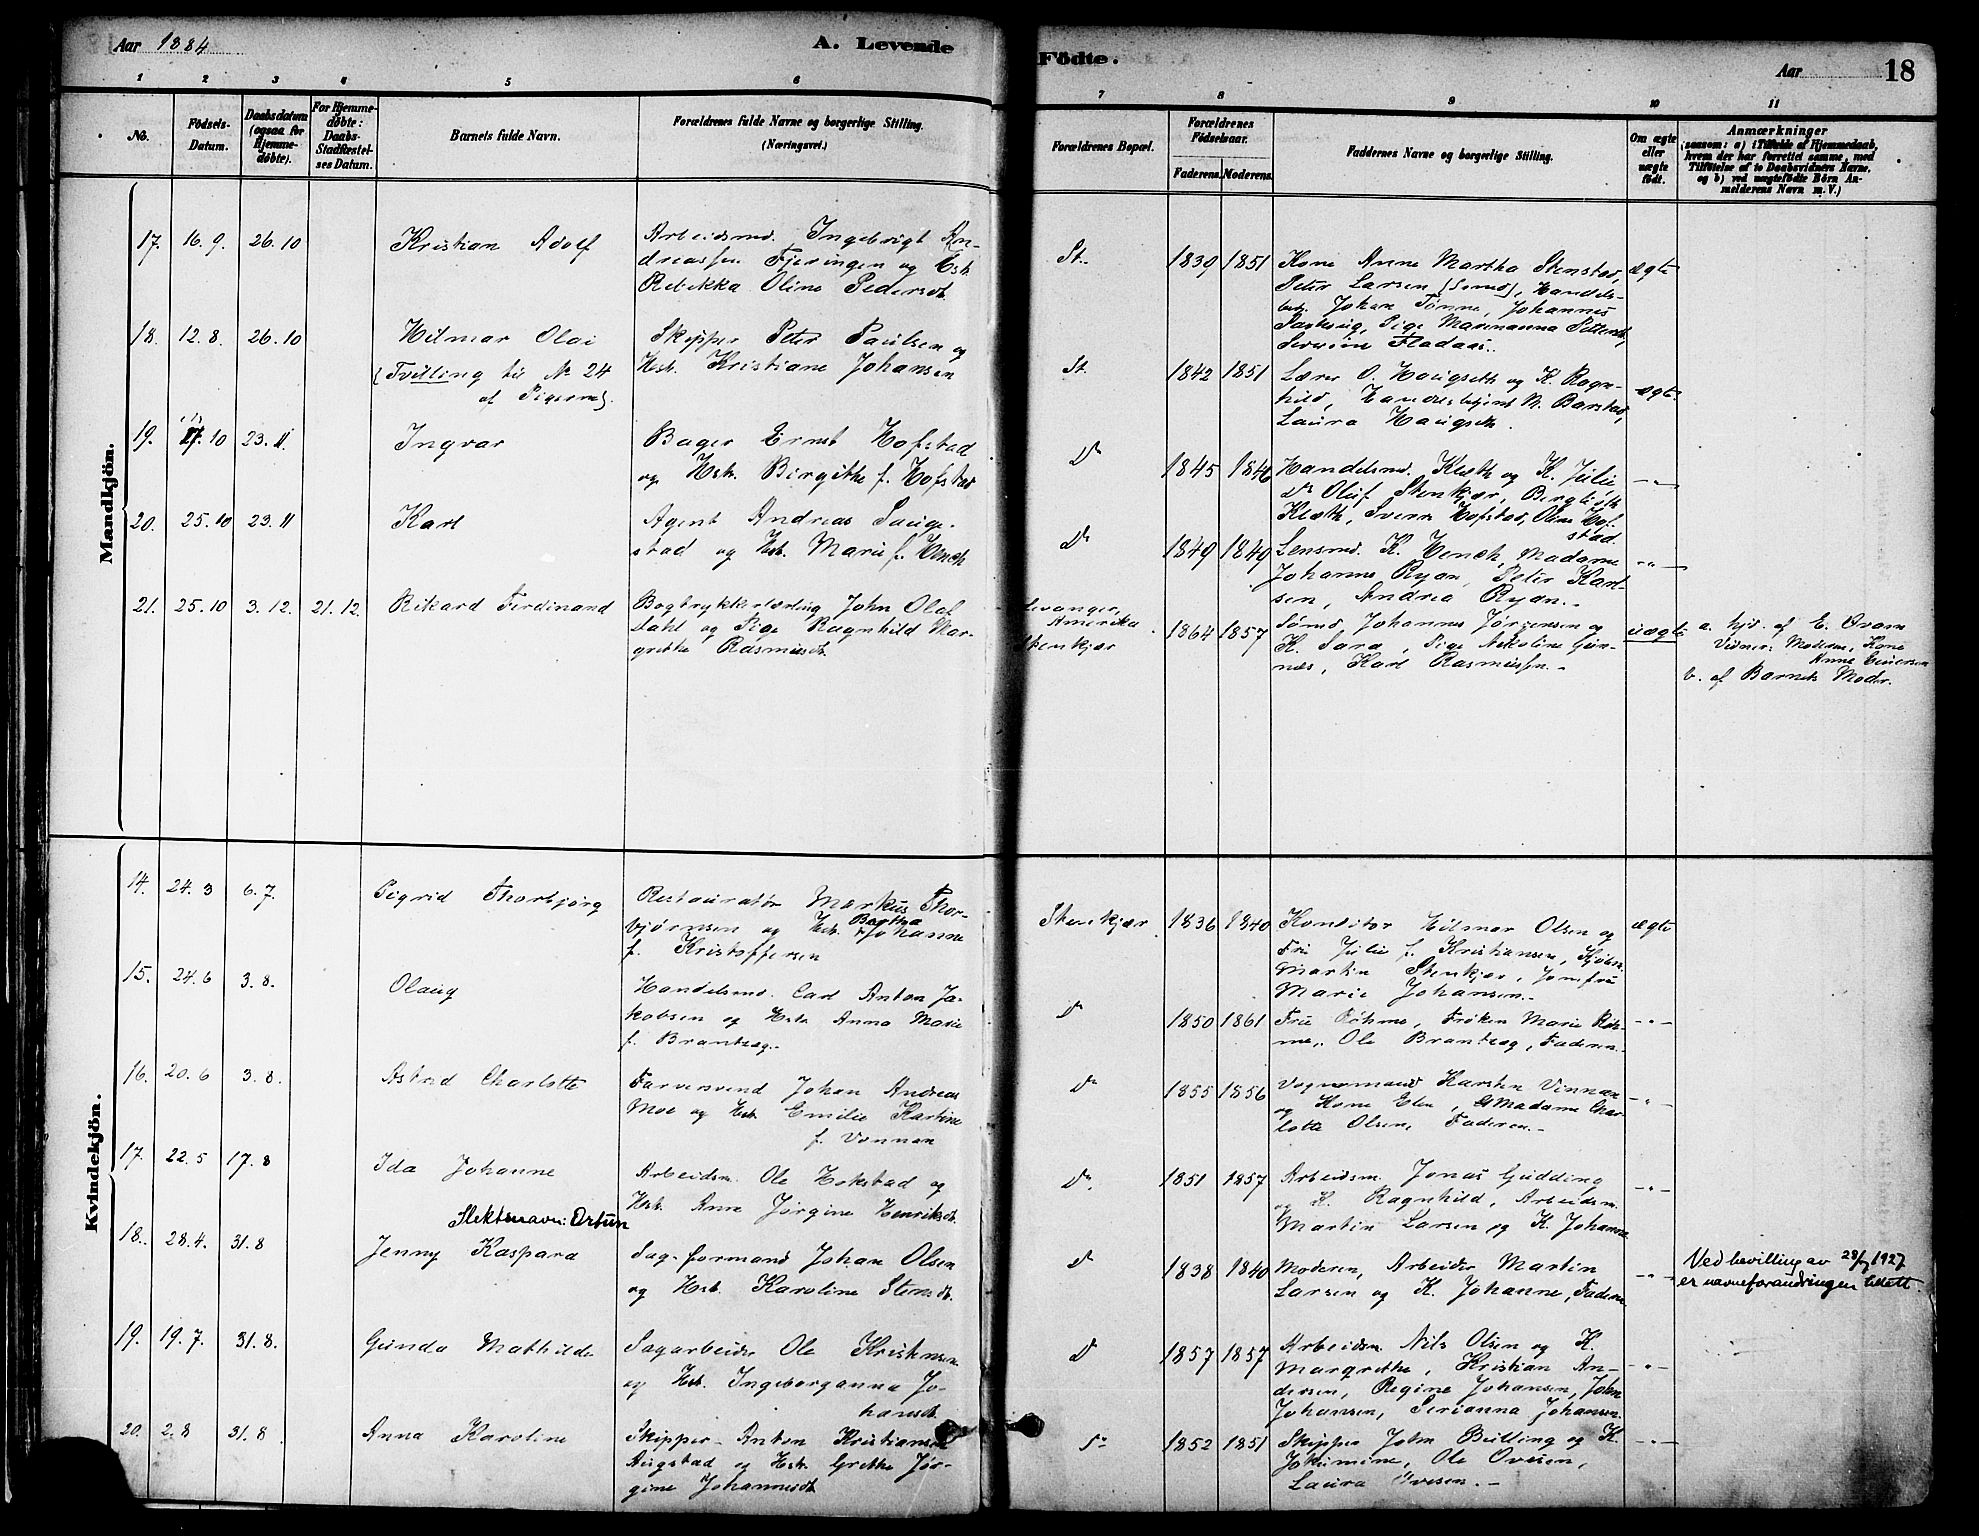 Aar 1884
A. Levende
1 2 3 4 5 6
No.
Födsels-
Datum.
Daabsdatum
(ogsaa for
Hjemme-
döbte).
For Hjemme-
döbte:
Daabs-
Stadfæstel-
ses Datum.
Barnets fulde Navn.
Forældrenes fulde Navne og borgerlige Stilling.
(Næringsvei.)
Mandkjön.
17. 16. 9. 26. 10
Kristian Adolf
Arbeidsmd. Ingebrigt An-
dreassen Fjeringen og Hst.
Rebekka Oline Pedersdt.
18. 12. 8. 26. 10
Hilmar Olai
(Tvilling til No 24
af Pigerne).
Skipper Peter Paulsen og
Hst. Kristiane Johansen
19. 10 23. 11
Ingvar
Bager Ernst Hofstad
og Hst. Birgithe f. Hofstad
20. 25. 10 23. 11
Karl
Agent Andreas Sauge-
stad og Hst. Marie f.
21. 25. 10 3. 12. 21. 12.
Rikard Ferdinand
Bogtrykkerlærling John Olaf
Dahl og Pige Ragnhild Mar-
grethe Rasmusdt.
Kvindekjön.
14. 24. 3 6. 7.
Sigrid Thorbjørg
Restauratør Markus Thor-
bjørnsen og Hst. Bertha Johanne
f. Kristoffersen
15. 24. 6 3. 8.
Olaug
Handelsmd. Carl Anton Ja-
kobsen og Hst. Anna Marie
f. Brandtzæg.
16. 20. 6 3. 8.
Astrid Charlotte
Farversvend Johan Andreas
Moe og Hst. Emilie Kartine
f. Vonnan
17. 22. 5 17. 8
Ida Johanne
Arbeidsm. Ole Hokstad og
Hst. Anne Jørgine Henriksdt.
Slektsnavn: Ortun
18. 28. 4. 31. 8
Jenny Kaspara
Sag-formand Johan Olsen
og Hst. Karoline Stensdt.
19. 19. 7. 31. 8.
Gunda Mathilde
Sagarbeider Ole Kristensen
og Hst. Ingeborganna Jo-
hansdt.
20. 2. 8 31. 8.
Anna Karoline
Skipper Anton Kristiansen
Augstad og Hst. Grethe Jør-
gine Johannesdt.
Födte.
Aar 18
7 8 9 10 11
Forældrenes Bopæl.
Forældrenes
Födselsaar.
Faderens. Moderens.
Faddernes Navne og borgerlige Stilling.
Om ægte
eller
uægte
födt.
Anmærkninger
(saasom: a) i Tilfælde af Hjemmedaab,
hvem der har forrettet samme, med
Tilföielse af to Daabsvidners Navne,
og b) ved uægtefödte Börn An-
melderens Navn m. V.)
St. 1839 1851
Kone Anne Martha Stenstad, ægte
Peter Larsen (Smed), Handels-
betj. Johan Tønne, Johannes
Pige Marenanna
Fladaas.
St. 1842 1851
Lærer O. Haugseth og K. Ragn- ægte
hild, Handelsbetjent M. Barstad,
Laura Haugseth.
Do 1845 1846
Handelsmd. Klæth og K. Julie — " —
Do Oluf Stenkjær, Bergljøth
Klæth, Sverre Hofstad, Oline Hof-
stad.
Do 1849 1849
Lensmd. K. Madame — " —
Johanne Ryan, Peter Karl-
sen, Andrea Ryan.
Levanger,
Amerika.
Stenkjær
1864 1857
Smed Johannes Jørgensen og uægte
K. Sara, Pige Nikoline
Karl Rasmussen.
a. hjd. af E. Ovam
Vidner: Moderen, Kone
Anne Einersen
b. af Barnets Moder.
Stenkjær 1836 1840
Konditor Hilmar Olsen og ægte
Fru Julie f. Kristiansen,
Martin Stenkjær, Jomfru
Marie Johansen.
Do 1850 1861
Fru Böhme, Frøken Marie Böh- — " —
me, Ole Brandtzæg, Faderen.
Do 1855 1856
Vognmand Karsten Vinnan — " —
og Kone Elen, Madame Char-
lotte Olsen, Faderen.
Do. 1851 1857
Arbeidsm. Jonas Gudding — " —
og K. Ragnhild, Arbeidsm.
Martin Larsen og K. Johanne
Do 1838 1840
Moderen, Arbeider Martin — " —
Larsen og K. Johanne, Faderen
Ved bevilling av 28/7 1927
er navneforandringen tillatt.
Do 1857 1857
Arbeidsm. Nils Olsen og K. — " —
Margrethe, Kristian An-
dersen, Regine Johansen, John
Johansen, Serianna Johansen.
Do 1852 1851
Skipper John Butling og K. — " —
Jokumine, Ole Ovesen,
Laura Ovesen.